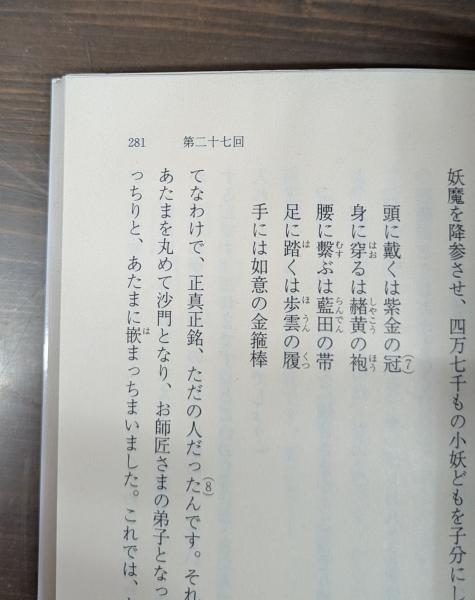 281 第二十七回
妖魔を降参させ、四万七千もの小妖どもを子分にし
頭に戴くは紫金の冠(7)
身に穿るは赭黄の袍
腰に繫ぶは藍田の帯
足に踏くは歩雲の履
手には如意の金箍棒
てなわけで、正真正銘、ただの人だったんです。(8)それ
あたまを丸めて沙門となり、お師匠さまの弟子となっ
っちりと、あたまに嵌まっちまいました。これでは、